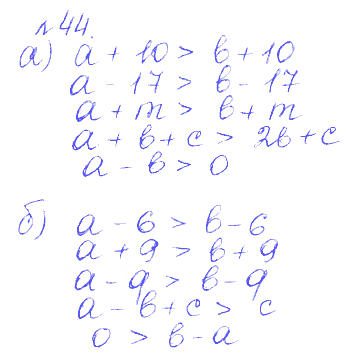 №44.
а) a + 10 > b + 10
a - 17 > b - 17
a + m > b + m
a + b + c > 2b + c
a - b > 0
б) a - 6 > b - 6
a + 9 > b + 9
a - q > b - q
a - b + c > c
0 > b - a